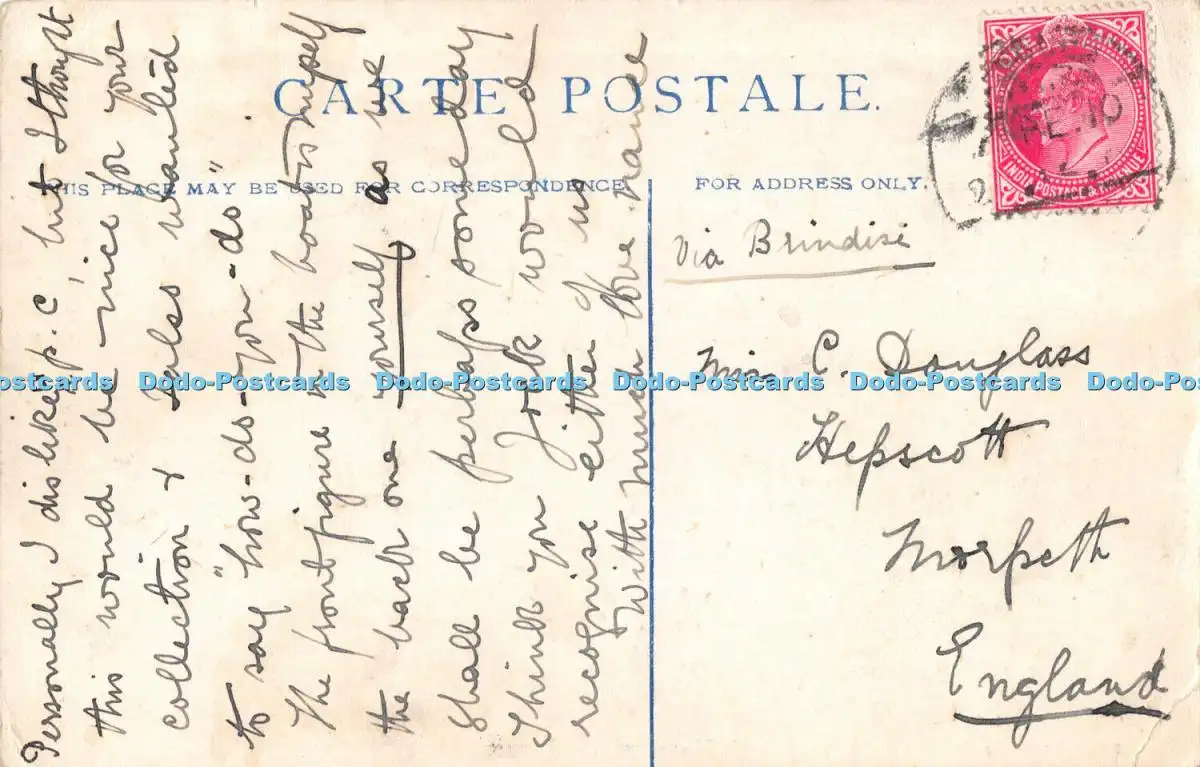 CARTE POSTALE.
THIS PLACE MAY BE USED FOR CORRESPONDENCE
FOR ADDRESS ONLY.
INDIA POSTAGE & REVENUE
ONE ANNA
FE 10
Via Brindisi
Miss C. Douglass
Hepscott
Morpeth
England
Personally I dislike p.c', but I thought
this would be nice for your
collection & I also wanted
to say "how-do-you-do"
The front figure in the boat is myself
the back one yourself as we
shall be perhaps some day
I think you Jock would
recognise either of us
With much love
Dodo-Postcards Dodo-Postcards Dodo-Postcards Dodo-Postcards Dodo-Postcards Dodo-Postcards